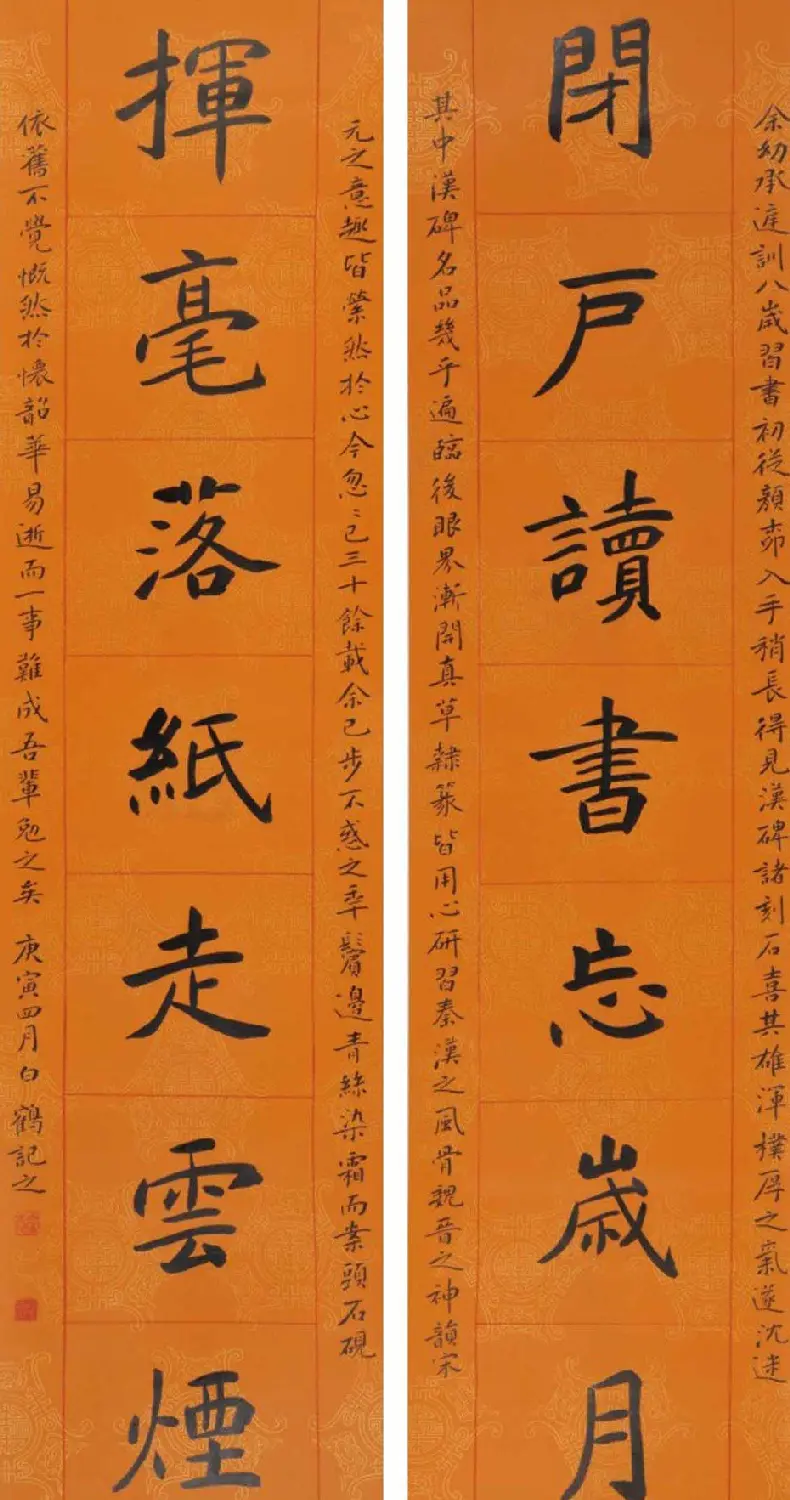 閉戶讀書忘歲月
余幼承庭訓八歲習書初從顏柳入手稍長得見漢碑諸刻石喜其雄渾樸厚之氣遂沈迷
其中漢碑名品幾乎遍臨後眼界漸開真草隸篆皆用心研習秦漢之風骨魏晉之神韻宋
揮毫落紙走雲煙
元之意趣皆縈然於心今忽〻已三十餘載余已步不惑之年鬢邊青絲染霜而案頭石硯
依舊不覺慨然於懷韶華易逝而一事難成吾輩勉之矣 庚寅四月白鶴記之